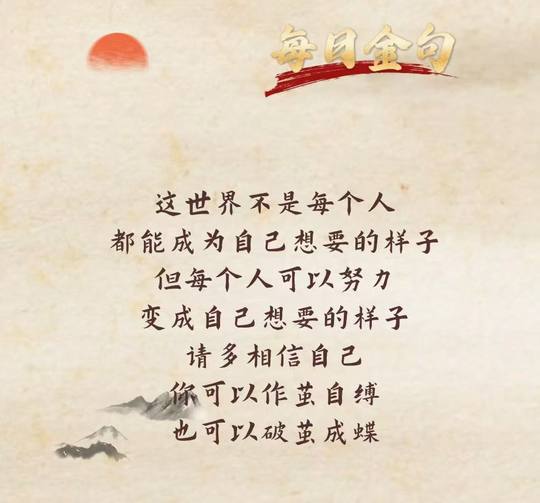 每日金句
这世界不是每个人
都能成为自己想要的样子
但每个人可以努力
变成自己想要的样子
请多相信自己
你可以作茧自缚
也可以破茧成蝶